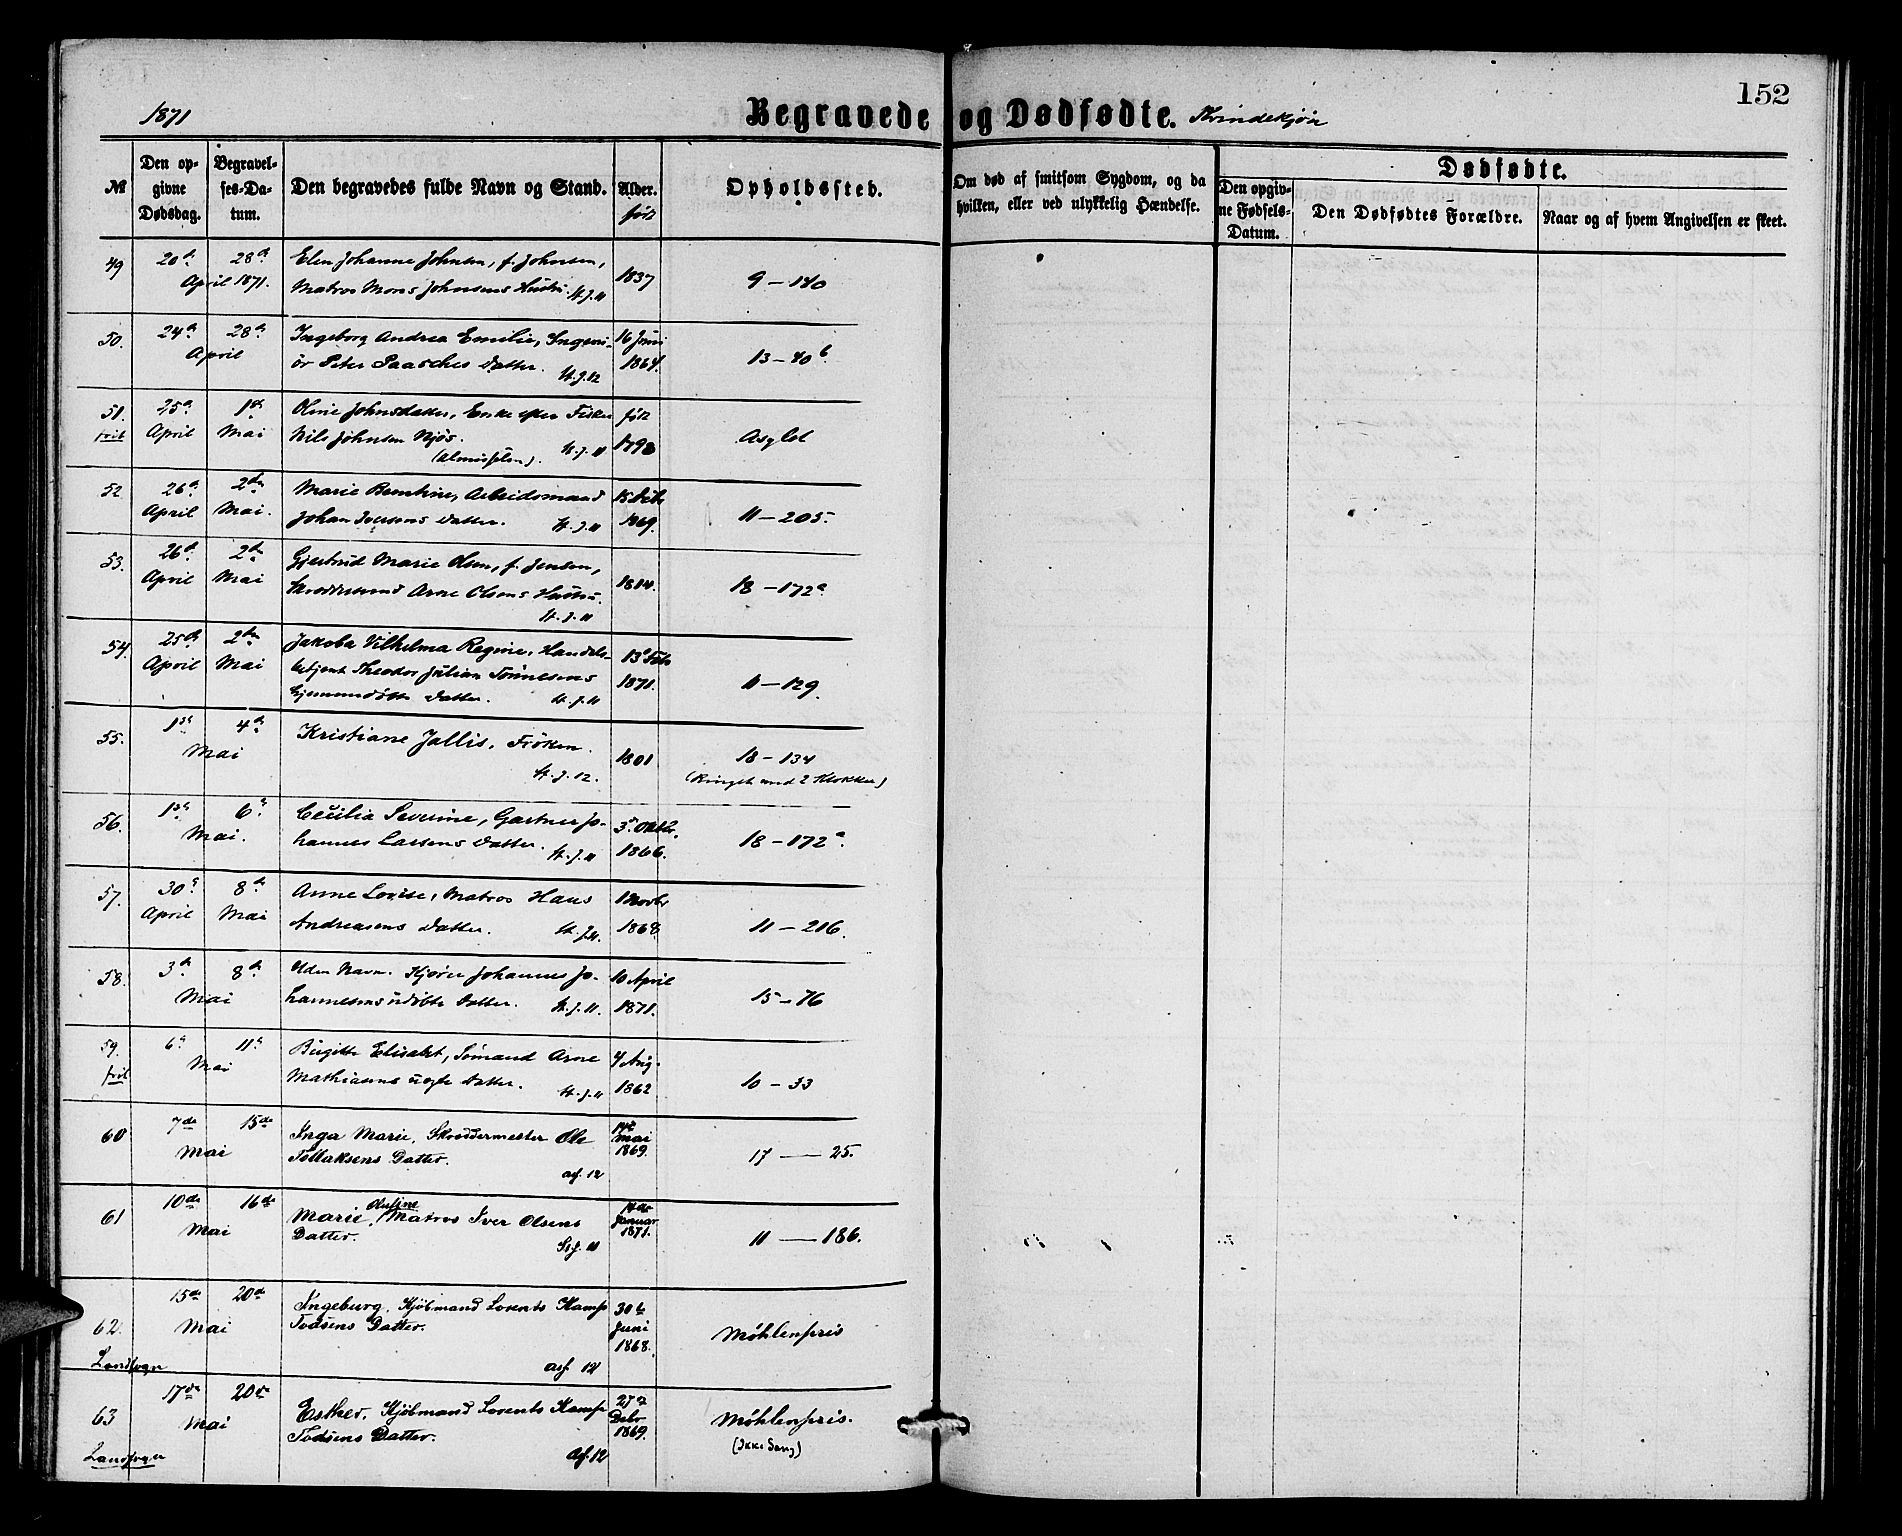 152
1871
Begravede og Dødfødte. Kvindekjøn
№
Den op-
givne
Dødsdag.
Begravel-
ses-Da-
tum.
Den begravedes fulde Navn og Stand.
Alder.
født
Opholdssted.
Om død af smitsom Sygdom, og da
hvilken, eller ved ulykkelig Hændelse.
Dødfødte.
Den opgiv-
ne Fødsels-
Datum.
Den Dødfødtes Forældre.
Naar og af hvem Angivelsen er skeet.
49 20de 28de Elen Johanne Johnsen, f. Johnsen,
April 1871. Matros Mons Johnsens Hustru. St. J. 11 1837 9 – 140
50. 24de 28de Ingeborg Andrea Emilie, Ingeni- 16 Juni
April ør Peter Paasches Datter. St. J. 12 1864. 13 – 40b
51. 25de 1ste Oline Johnsdatter, Enke efter Fisker født
frit April Mai Nils Johnsen Njøs. St. J. 11 Asylet
52 26de 2den Marie Berntine, Arbeidsmand
April Mai. Johan Iversens Datter. St. J. 11 1869. 11 – 205.
53. 26de 2den Gjertrud Marie Olsen, f. Jensen,
April Mai Arne Olsens Hustru. 1814. 18 – 172a
St. J. 11
54. 25de 2den Jakoba Vilhelma Regine, Handels- 13de Feb
April Mai betjent Theodor Julian Tønnesens 1871. 11 – 129.
Datter. St. J. 11
55. 1ste 4de Kristiane Jallis, Frøken.
Mai St. J. 12. 1801 18 – 134
(Ringet med 2 Klokker)
56. 1ste 6te Cecilia Severine, Gartner Jo- 3. Oktbr.
Mai. hannes Larsens Datter. St. J. 11 1866. 18 – 172a.
57. 30te 8de Anne Lovise, Matros Hans
April Mai Andreasens Datter. St. J. 11. 1868. 11 – 216.
58. 3de 8de Uden Navn. Kjører Johannes Jo- 10 April
Mai hannesens udøbte Datter. St. J. 11. 1871. 15 – 76
59. 6te 11te Birgitte Elisabet, Sømand Arne 4 Aug.
frit Mai Mathiasens uægte Datter. St. J. 11 1862 10 – 33
60 7de 15de Inga Marie, Skræddermester Ole 14de Mai
Mai Tollaksens Datter. 1869. 17 — 25.
asf. 12
61 10de 16de Marie Olufine, Matros Iver Olsens 14de Januar
Mai Datter. 1871. 11 — 186.
62. 15de 20de Ingeburg, Kjøbmand Lorents Kamp 30te Juni
Mai Todsens Datter. 1868. Møhlenpris
Landsogn asf. 12
63 17de 20de Esther, Kjøbmand Lorents Kamp Debr
Mai Todsens Datter. 1869. Møhlenpris.
Landsogn asf. 12 (Ikke Sang)